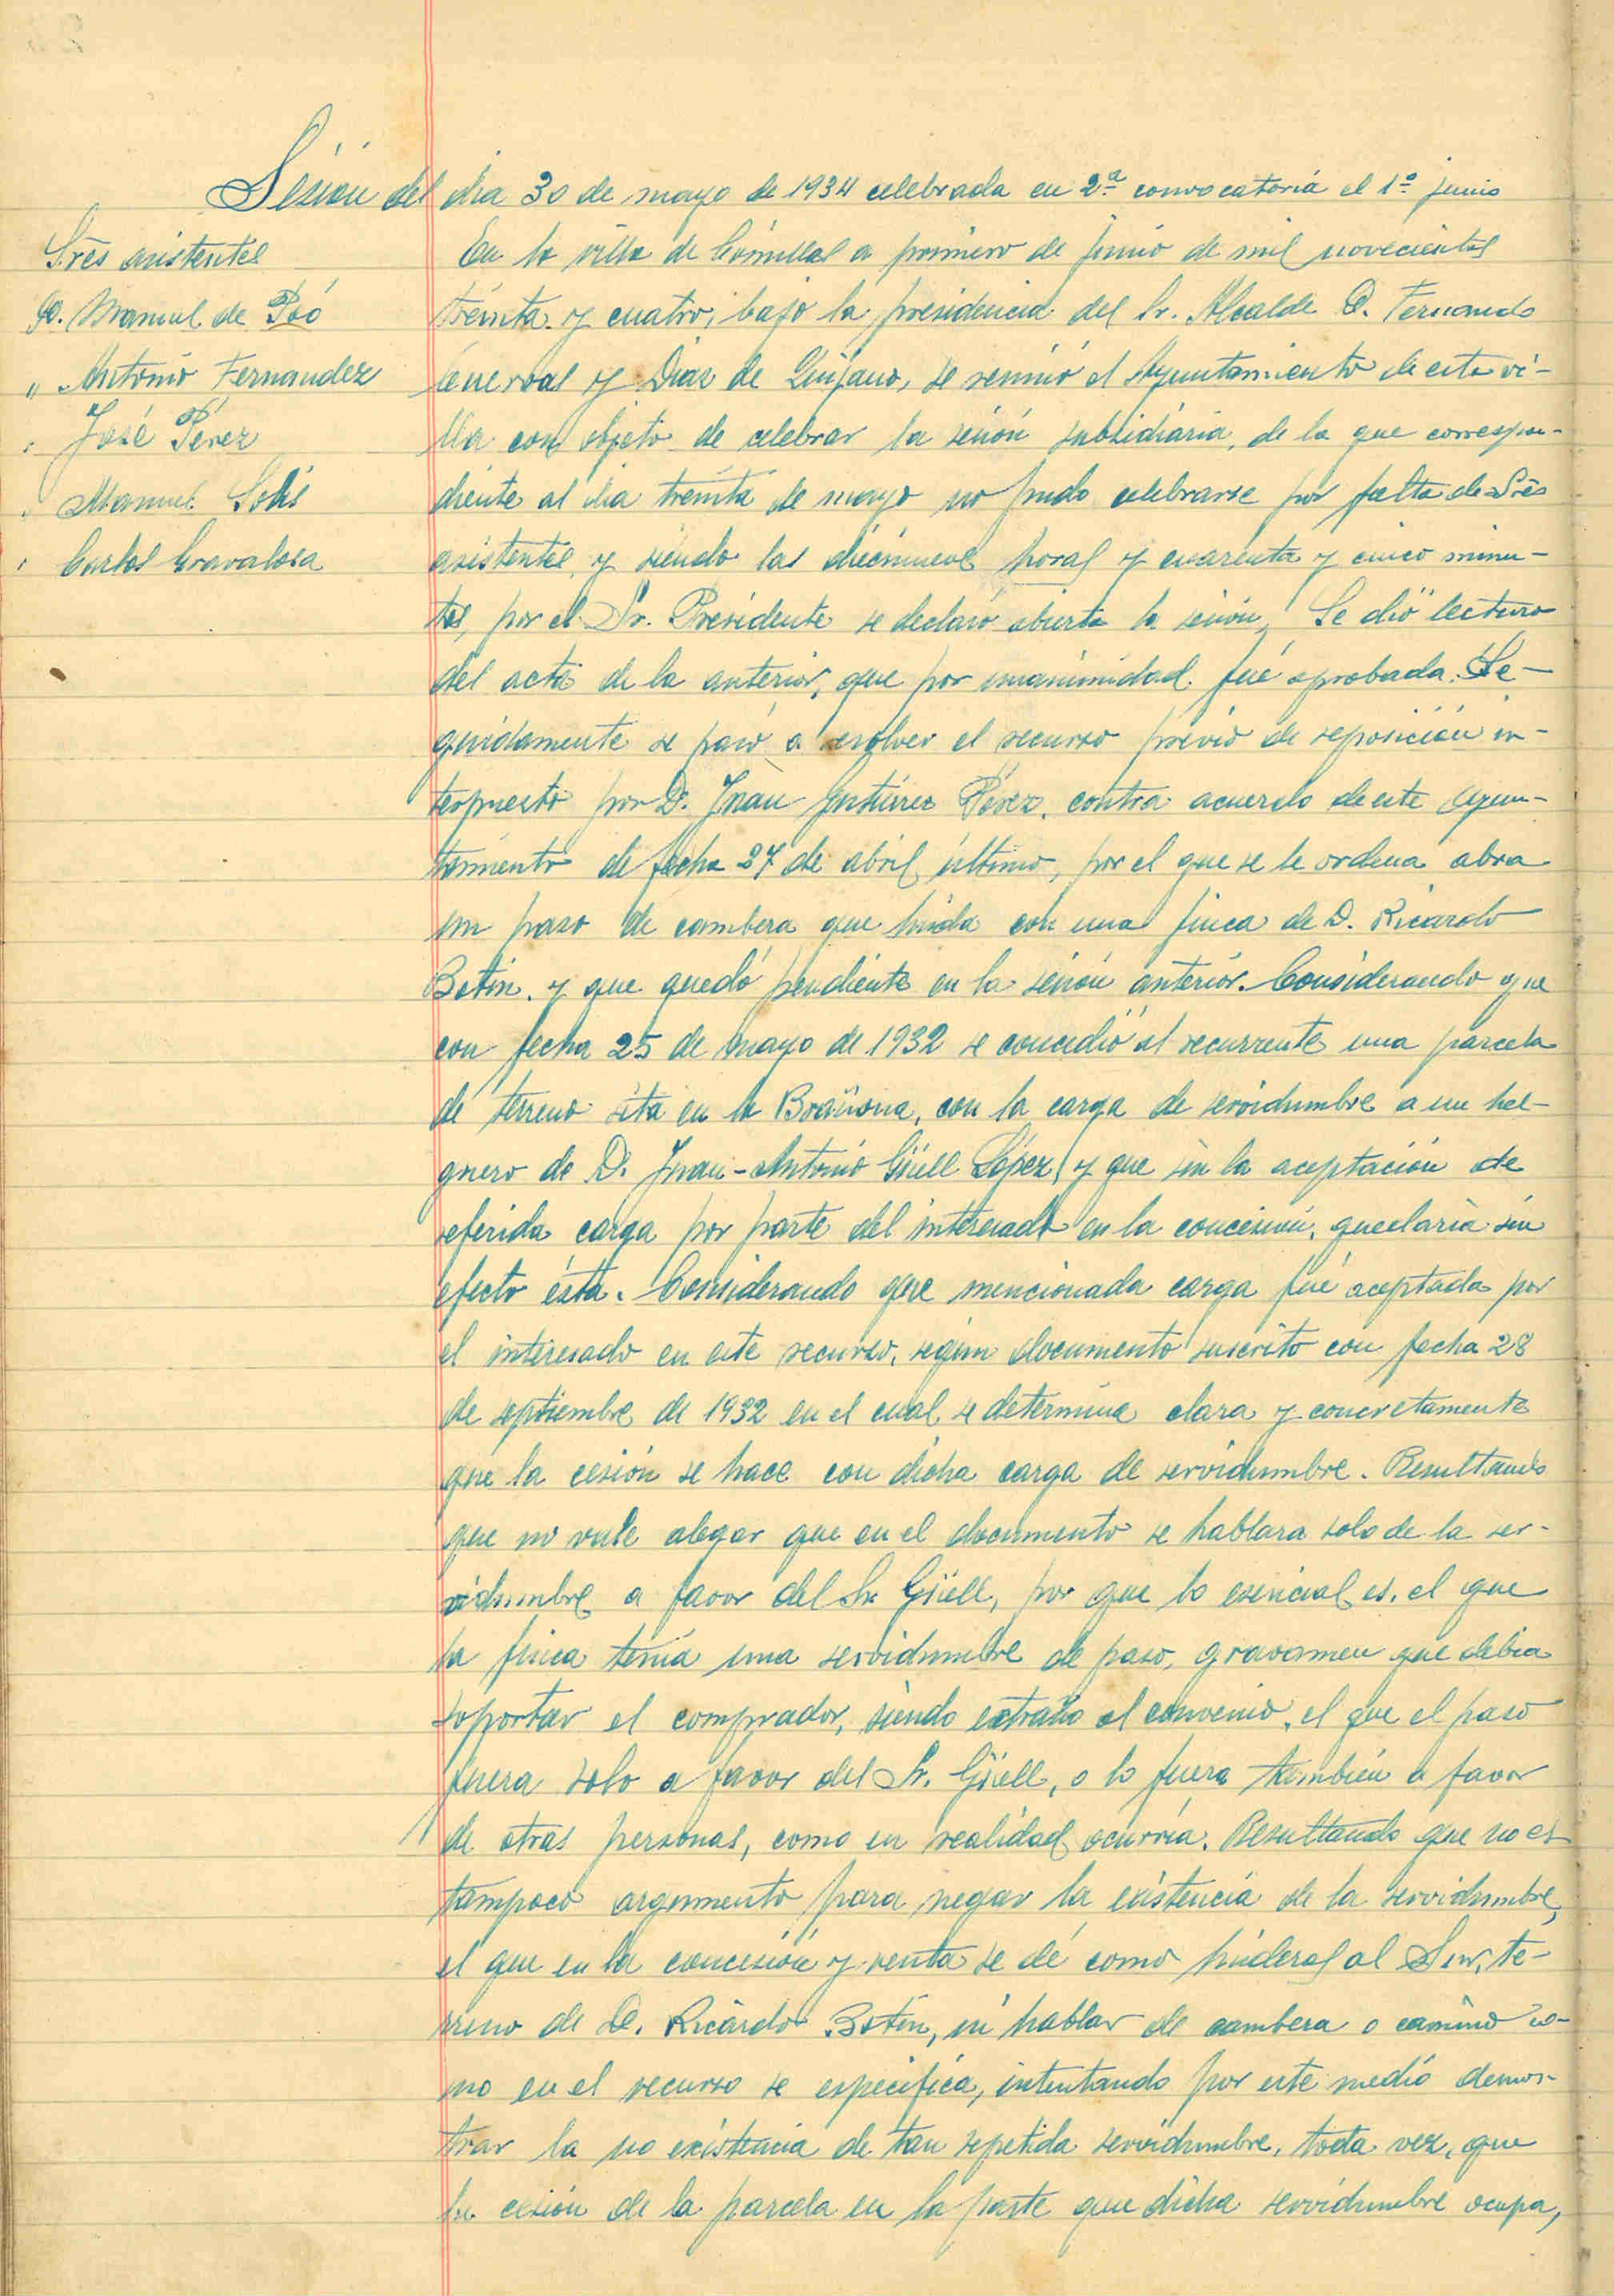 Sesión del dia 30 de mayo de 1934 celebrada en 2ª convocatoria el 1º junio
Sres asistentes
D. Manuel de Poó
" Antonio Fernandez
" José Pérez
" Manuel Solis
" Carlos
En la villa de Comillas a primero de junio de mil novecientos
treinta y cuatro, bajo la presidencia del Sr. Alcalde D. Fernando
y Diaz de Quijano, se reunió el Ayuntamiento de esta vi-
lla con objeto de celebrar la sesión subsidiaria, de la que correspon-
diente al dia treinta de mayo no pudo celebrarse por falta de Sres
asistentes, y siendo las diecinueve horas y cuarenta y cinco minu-
tos, por el Sr. Presidente se declaró abierta la sesión. Se dió lectura
del acta de la anterior, que por unanimidad fué aprobada. Se-
guidamente se pasó a resolver el recurso previo de reposición in-
terpuesto por D. Juan Gutiérrez Pérez, contra acuerdo de este Ayun-
tamiento de fecha 27 de abril último, por el que se le ordena abra
un paso de cambera que linda con una finca de D. Ricardo
Botin, y que quedó pendiente en la sesión anterior. Considerando que
con fecha 25 de mayo de 1932 se concedió al recurrente una parcela
de terreno sita en la Brañona, con la carga de servidumbre a un hel-
guero de D. Juan-Antonio Güell López, y que sin la aceptación de
referida carga por parte del interesado en la concesión, quedaria sin
efecto ésta. Considerando que mencionada carga fué aceptada por
el interesado en este recurso, según documento suscrito con fecha 28
de septiembre de 1932 en el cual se determina clara y concretamente
que la cesión se hace con dicha carga de servidumbre. Resultando
que no vale alegar que en el documento se hablara solo de la ser-
vidumbre a favor del Sr. Güell, por que lo esencial es, el que
la finca tenia una servidumbre de paso, gravamen que debia
soportar el comprador, siendo extraño al convenio, el que el paso
fuera solo a favor del Sr. Güell, o lo fuera tambien a favor
de otras personas, como en realidad ocurria. Resultando que no es
tampoco argumento para negar la existencia de la servidumbre,
el que en la concesión y venta se dé como linderos al Sur, te-
rreno de D. Ricardo Botin, sin hablar de cambera o camino co-
mo en el recurso se especifica, intentando por este medio demos-
trar la no existencia de tan repetida servidumbre, toda vez, que
la cesión de la parcela en la parte que dicha servidumbre ocupa,